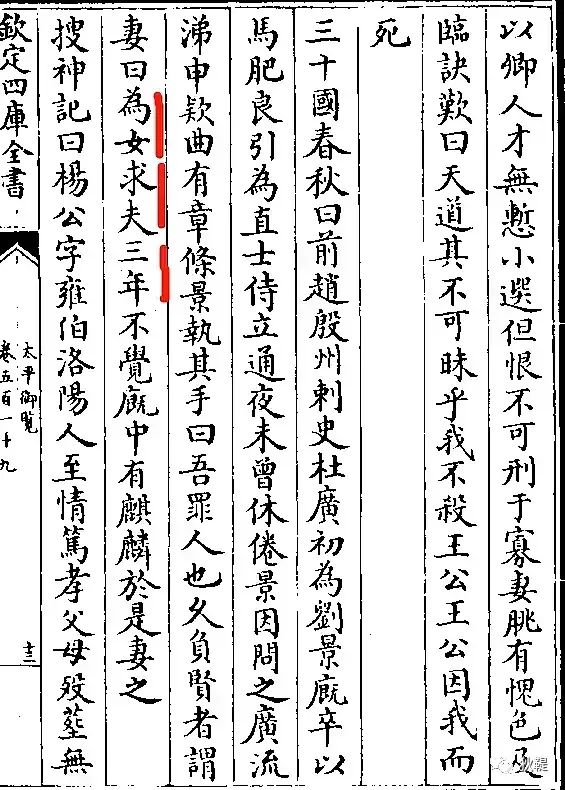 以卿人才無慙小選但恨不可刑于寡妻朓有愧色及
臨訣歎曰天道其不可昧乎我不殺王公王公因我而
死
三十國春秋曰前趙殷州刺史杜廣初為劉景廐卒以
馬肥良引為直士侍立通夜未曾休倦景因問之廣流
涕申欵曲有章條景執其手曰吾罪人也久負賢者謂
妻曰為女求夫三年不覺廐中有麒麟於是妻之
搜神記曰楊公字雍伯洛陽人至情篤孝父母殁塟無
欽定四庫全書
太平御覧
卷五百一十九
十三